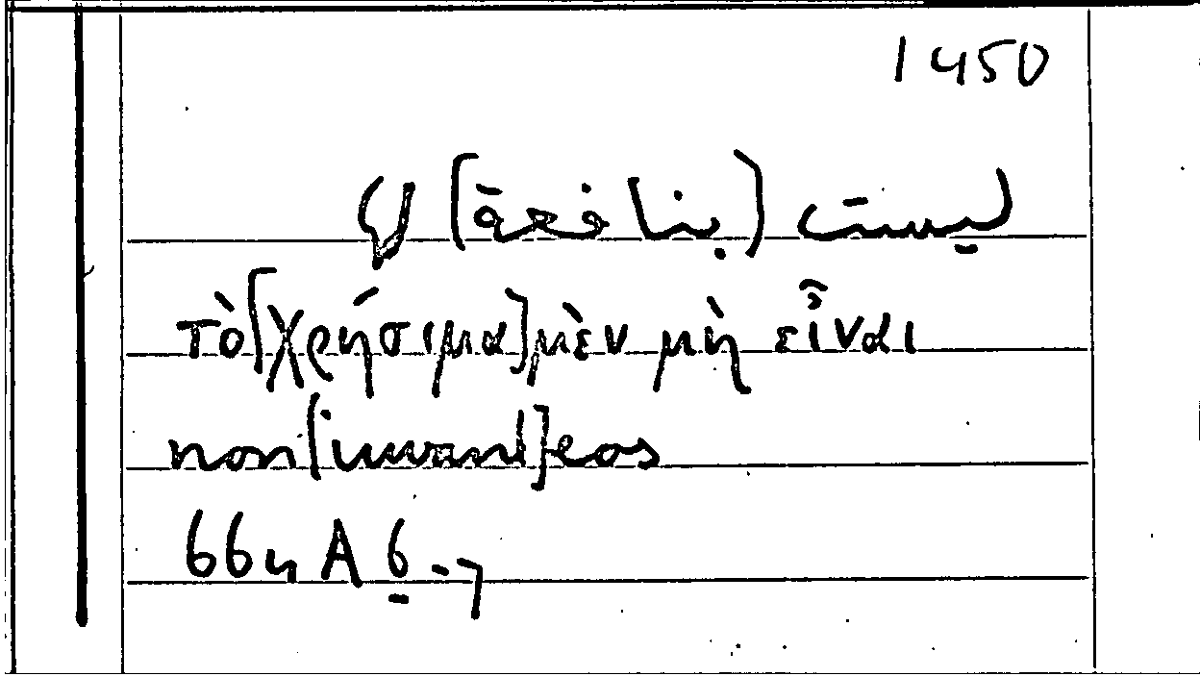 1450
ليست (بنافعة) لها
τὸ [χρήσιμα] μὲν μὴ εἶναι
non [iuvant] eos
664 A 6-7